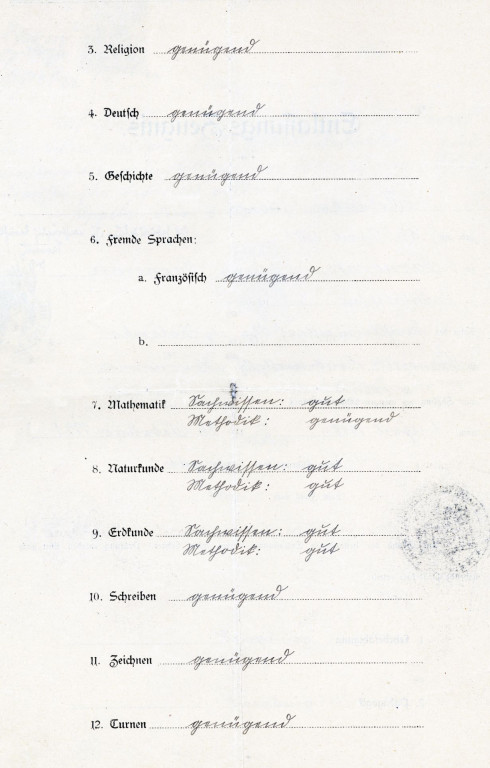 3. Religion genügend
4. Deutsch genügend
5. Geschichte genügend
6. Fremde Sprachen:
a. Französisch genügend
b.
7. Mathematik Sachwissen: gut
Methodik: genügend
8. Naturkunde Sachwissen: gut
Methodik: gut
9. Erdkunde Sachwissen: gut
Methodik: gut
10. Schreiben genügend
11. Zeichnen genügend
12. Turnen genügend